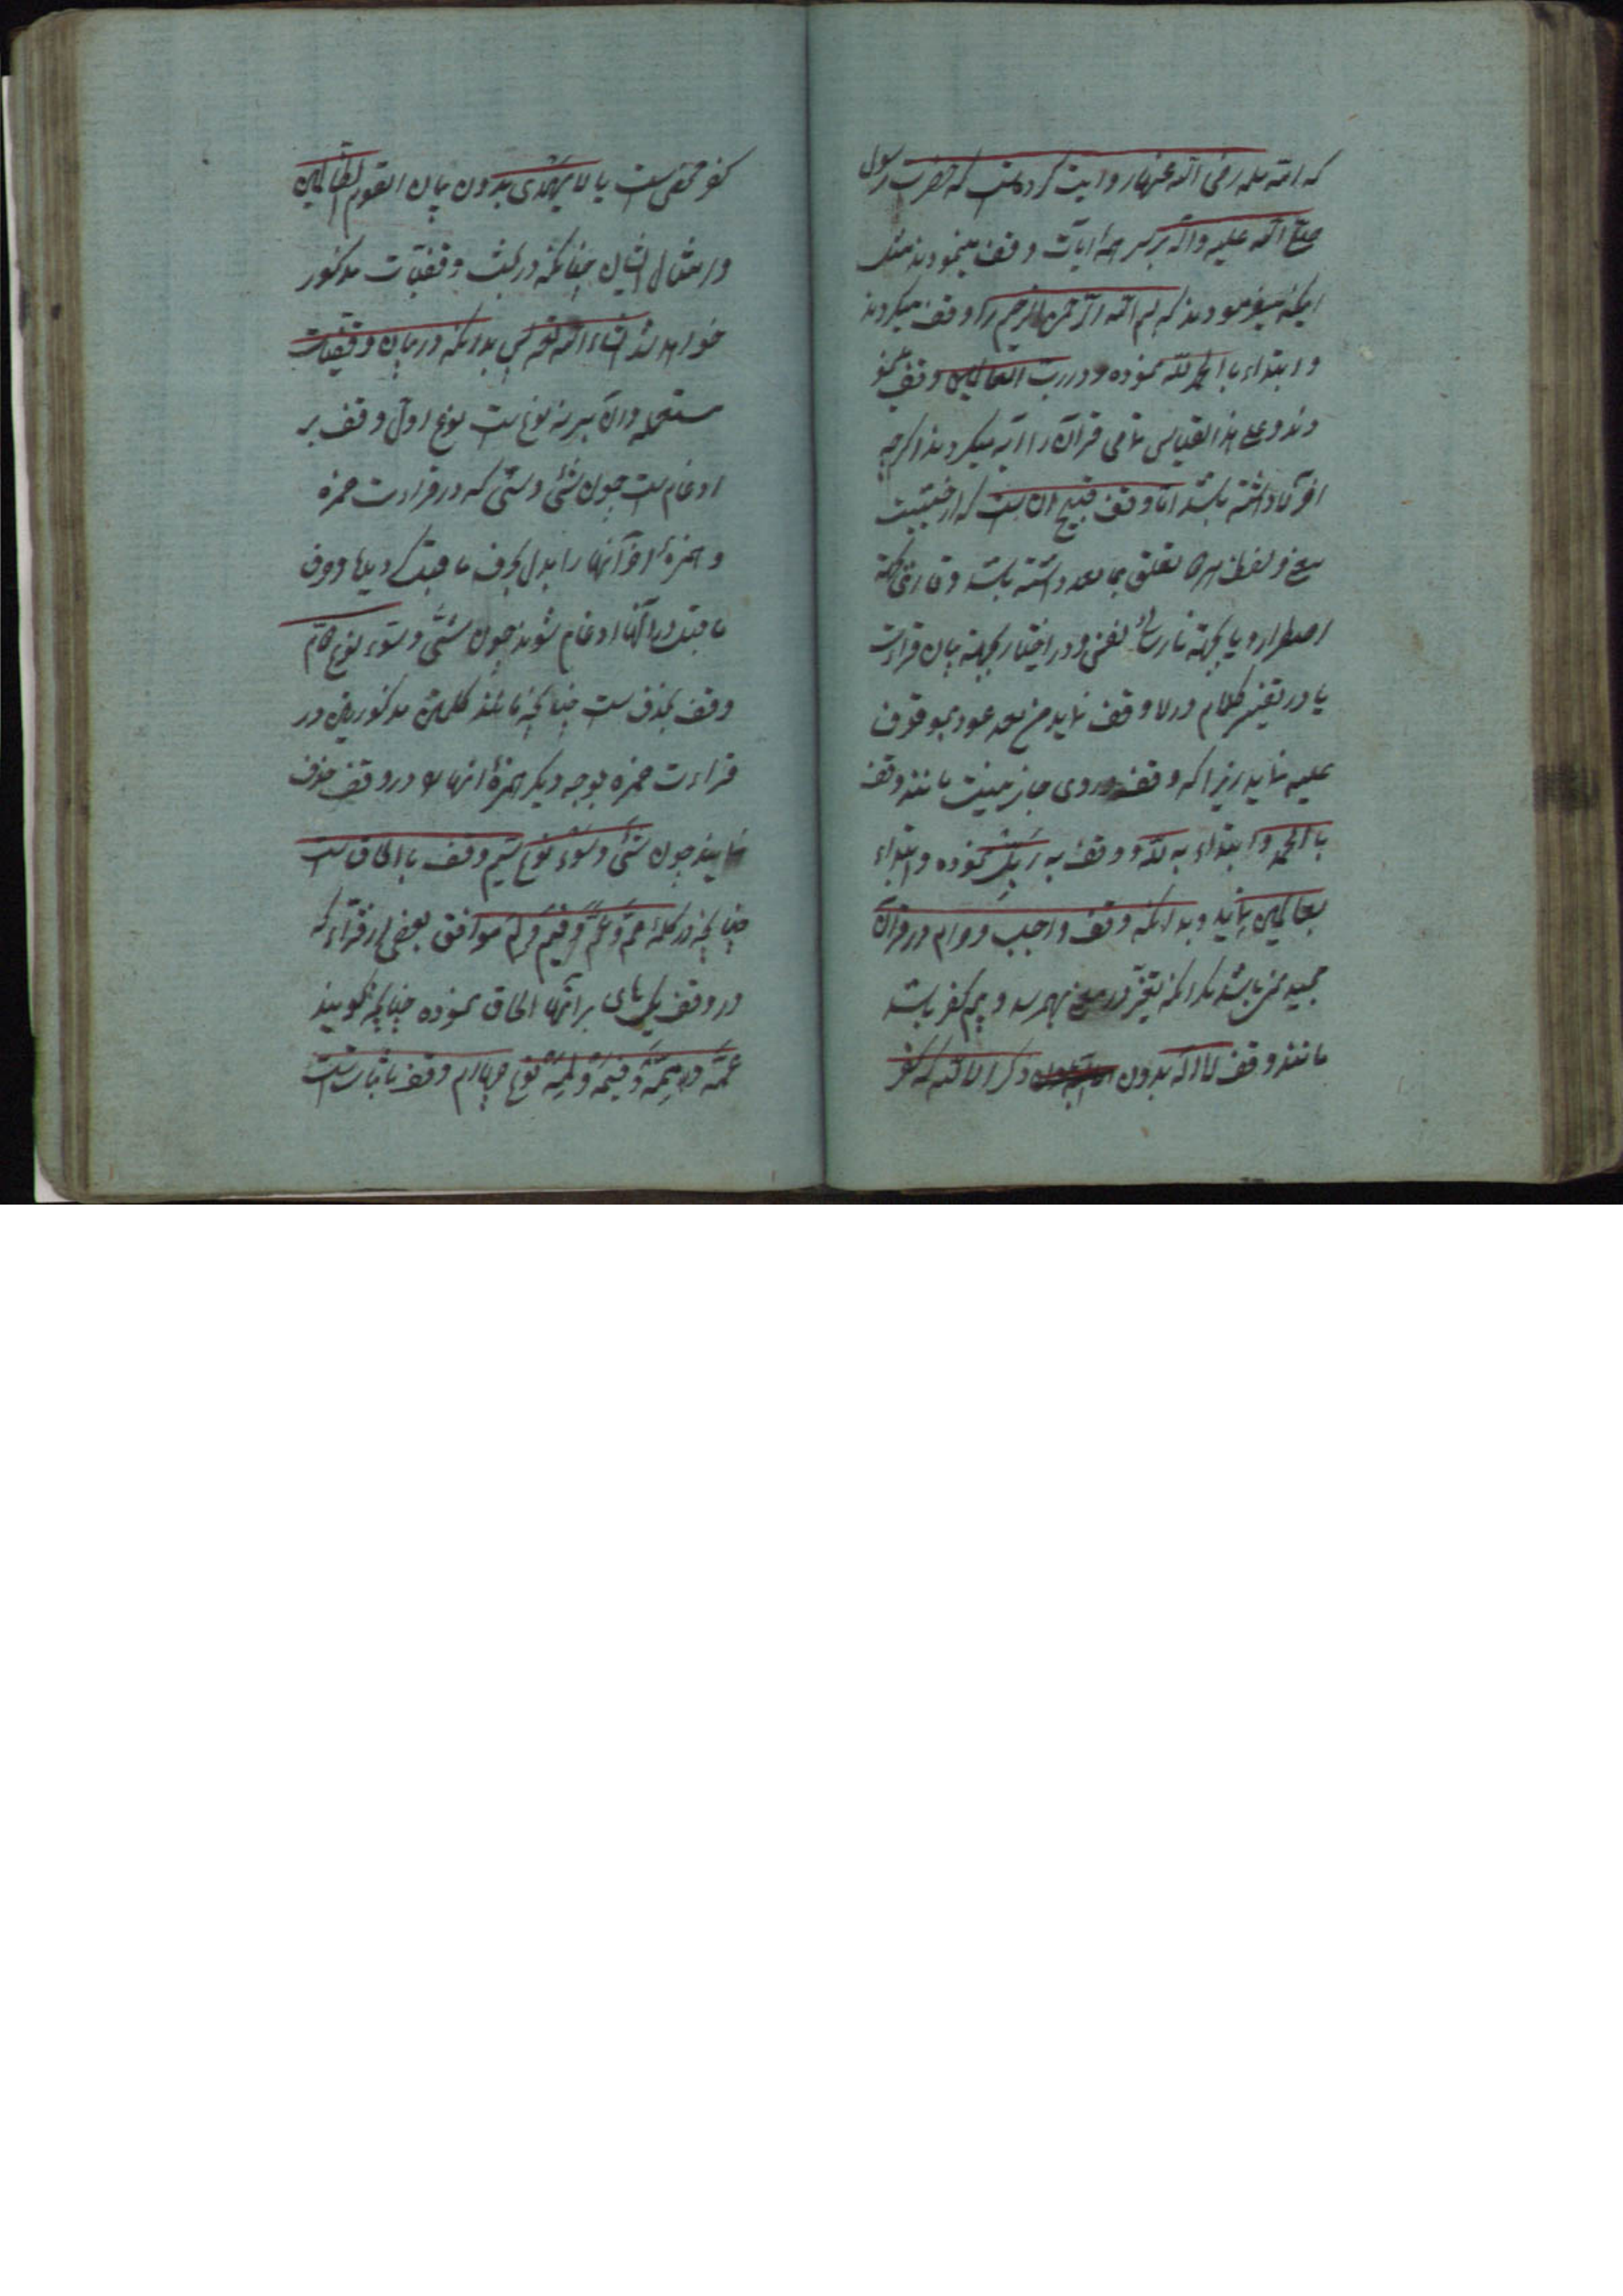 که ام سلمه رضی الله عنها روایت کرده است که حضرت رسول
صلی الله علیه وآله بر سر همه آیات وقف مینمودند مثل
اینکه میفرمودند که بسم الله الرحمن الرحیم را وقف میکردند
و ابتداء با الحمد لله نموده و در رب العالمین وقف مینمو
دند و علی هذا القیاس تمامی قرآن را آیه میکردند اگرچه
آنرا داشته باشد اما وقف قبیح آن است که از حیثیت
معنی و لفظ هر دو تعلق بما بعد داشته باشد و قاری بجهة
اضطرار و یا بجهة نارسائی نفس و در اختیار بجهة بیان قراءت
یا در تقسیم کلام در او وقف نماید من بعد عود بموقوف
علیه نماید زیرا که وقف در وی جایز نیست مانند وقف
با الحمد و ابتداء به لله و وقف به رب نموده و ابتداء
بعالمین نماید و بدانکه وقف واجب و حرام در قرآن
مجید نمی باشد مگر آنکه تغیر در معنی بهمرسد و بیم کفر باشد
مانند وقف لا اله بدون ذکر الا الله که کفر
کفر محض است یا لا یهدی بدون بیان القوم الظالمین
و امثال ایشان چنانکه در بحث وقفیات مذکور
خواهد شد انشاء الله تعالی بدانکه در بیان وقفیات
مستعمله و آن بر نه نوع است نوع اول وقف بر
ادغام است چون شئ و سئ که در قراءت حمزه
و همزه آخر آنها را بدل بحرف ماقبل کردند و حرف
ماقبل در آنها ادغام شوند چون شئ و سوء نوع دویم
وقف بحذف است چنانچه مانند کلمتین مذکورین در
قراءت حمزه بوجه دیگر همزه آنها در وقف حذف
نمایند چون شئ و سوء نوع سیم وقف با الحاق است
چنانچه در کلمه عم و مم و فیم و لم موافق بعضی از قراء که
در وقف یک های بر آنها الحاق نموده چنانچه گویند
عمه و ممه و فیمه و لمه نوع چهارم وقف باثبات است